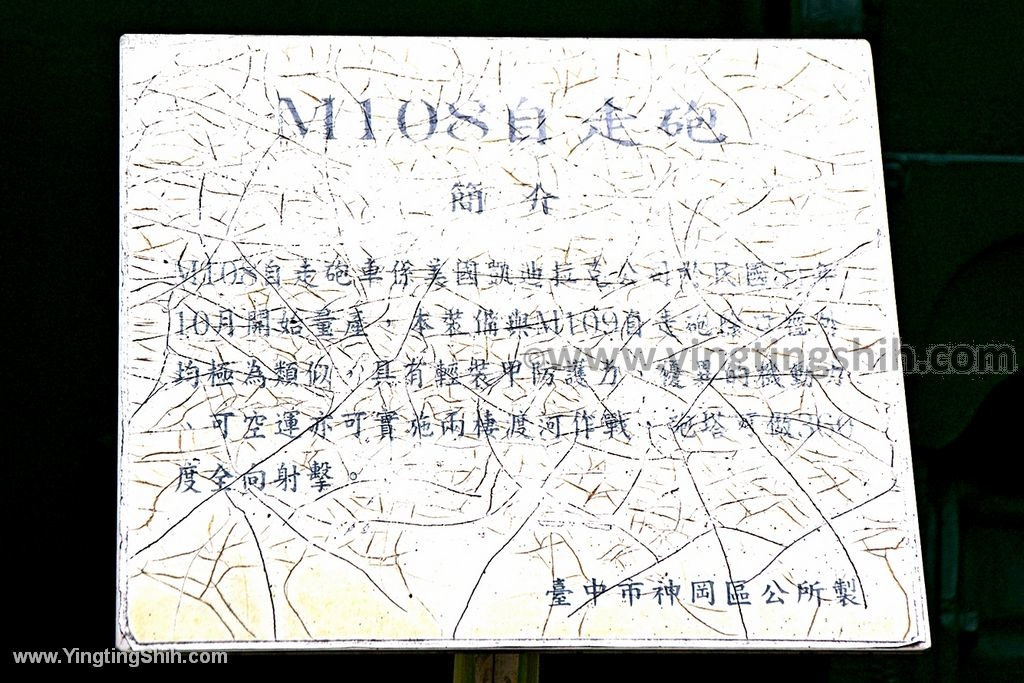 M108自走砲
簡介
M108自走砲車係美國凱迪拉克公司於民國 年
10月開始量產，本裝備與M109自走砲除口徑外
均極為類似，具有輕裝甲防護力、優異的機動力
、可空運亦可實施兩棲渡河作戰，砲塔可做360
度全向射擊。
臺中市神岡區公所製
©www.yingtingshih.com
www.YingtingShih.com